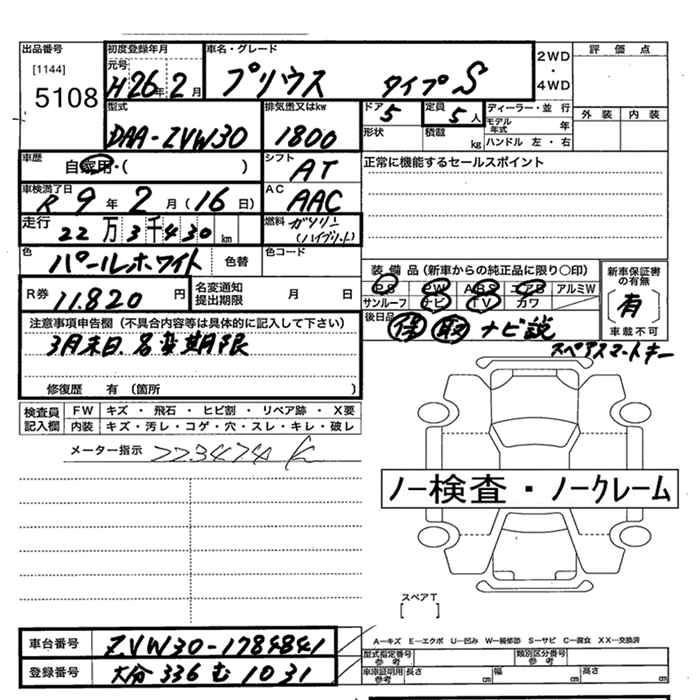 出品番号 初度登録年月 車名・グレード 2WD・4WD 評価点
[1144] 5108 元号 H26年2月 プリウス タイプS
型式 DAA-ZVW30 排気量又はkw 1800 ドア 5 定員 5人 ディーラー・並行 外装 内装
形状 積載 kg モデル年式 年
ハンドル 左・右
車歴 自家用・( ) シフト AT 正常に機能するセールスポイント
車検満了日 R9年2月(16日) AC AAC
走行 22万3千430km 燃料 ガソリン(ハイブリット)
色 パールホワイト 色替 色コード
装備品(新車からの純正品に限り○印) 新車保証書の有無
R券 11.820円 名変通知提出期限 月 日
PS PW ABS エアB アルミW (有)
サンルーフ ナビ TV カワ 車載不可
注意事項申告欄(不具合内容等は具体的に記入して下さい) 後日品 保 取 ナビ説
3月末日 名変期限 スペアスマートキー
修復歴 有(箇所 )
検査員記入欄 FW キズ・飛石・ヒビ割・リペア跡・X要
内装 キズ・汚レ・コゲ・穴・スレ・キレ・破レ
メーター指示 223474 K
ノー検査・ノークレーム
スペアT
[ ]
車台番号 ZVW30-1784841 A―キズ E―エクボ U―凹み W―補修跡 S―サビ C―腐食 XX―交換済
型式指定番号 参考 類別区分番号 参考
登録番号 大分 336 む 1031 車庫証明用 参考 長さ cm 幅 cm 高さ cm